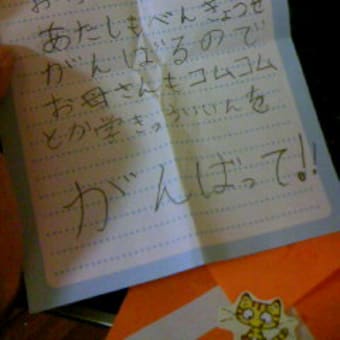 あたしもべんきょうせ
がんばるので
お母さんもコムコム
とか学きゅういいんを
がんばって!!